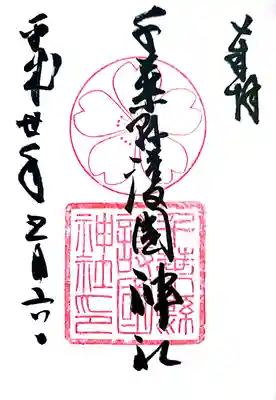 奉拝
千葉縣護國神社
平成廿年五月六日
千葉縣
護國
神社印